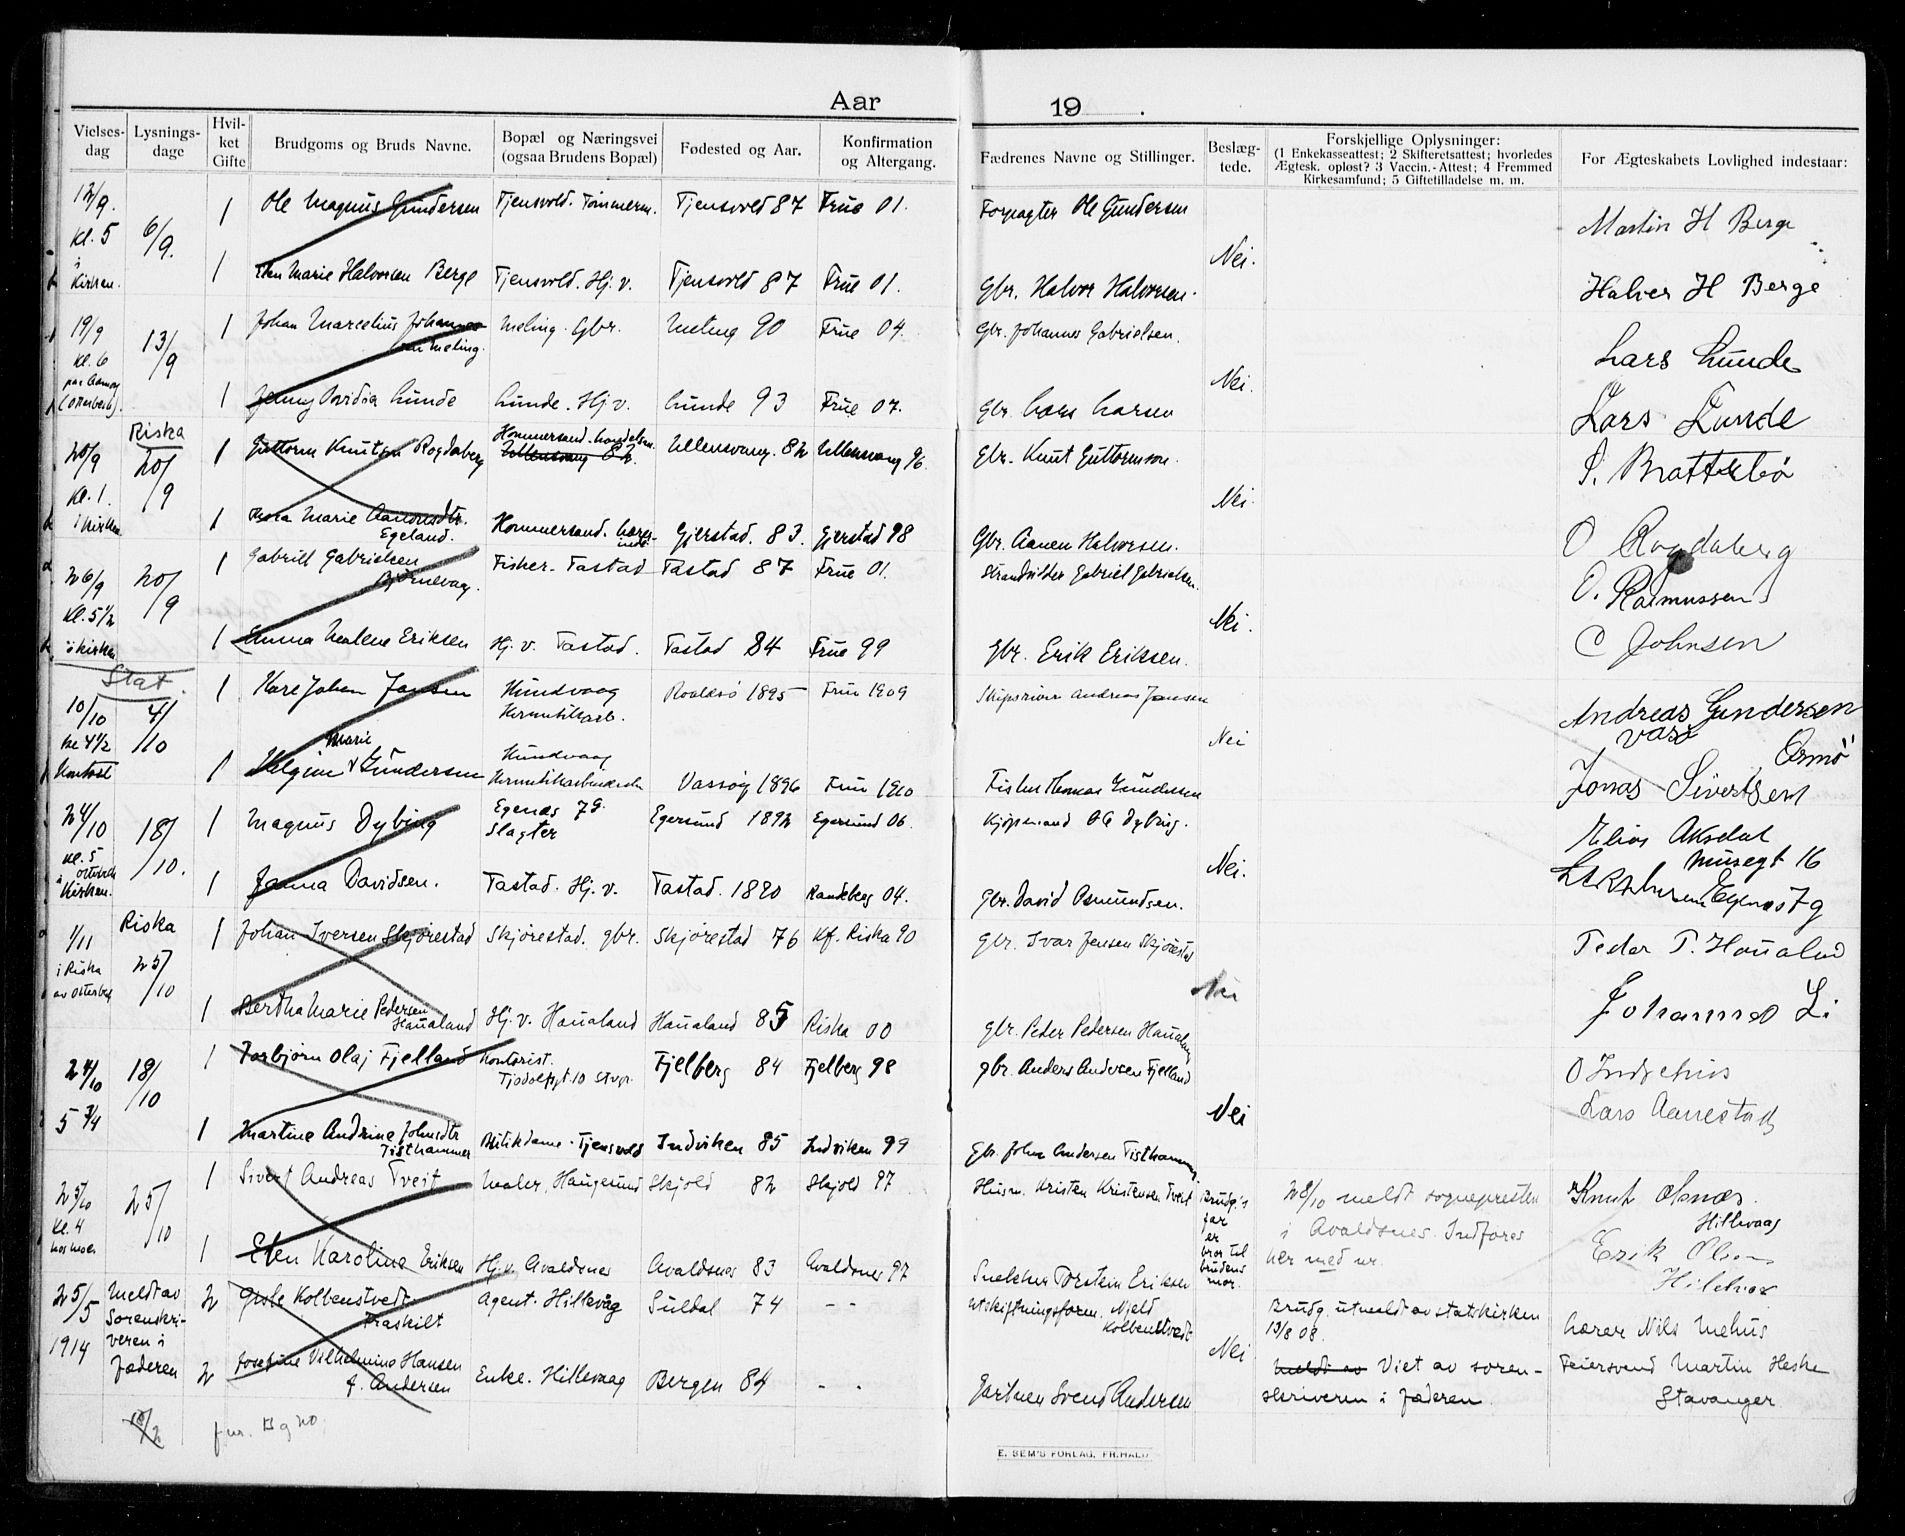 Aar 19
Vielses-dag
Lysnings-dage
Hvil-ket Gifte
Brudgoms og Bruds Navne.
Bopæl og Næringsvei (ogsaa Brudens Bopæl)
Fødested og Aar.
Konfirmation og Altergang.
Fædrenes Navne og Stillinger.
Beslæg-tede.
Forskjellige Oplysninger:
(1 Enkekasseattest; 2 Skifteretsattest; hvorledes
Ægtesk. opløst? 3 Vaccin.-Attest; 4 Fremmed
Kirkesamfund; 5 Giftetilladelse m. m.
For Ægteskabets Lovlighed indestaar:
12/9. Kl. 5 i Kirken. 6/9.
1 Ole Magnus Gundersen Tjensvold. Tømmerm. Tjensvold 87 Frue 01. Forpagter Ole Gundersen Martin H Berge
Nei.
1 Marie Halvorsen Berge Tjensvold. Hj. v. Tjensvold 87 Frue 01. Gbr. Halvor Halvorsen. Halver H Berge
19/9 Kl. 6 13/9
1 Johan Marcelius Johannes-sen Meling. Meling. Gbr. Meling 90 Frue 04. Gbr. Johannes Gabrielsen. Lars Lunde
Nei.
1 Jenny Ovidia Lunde Lunde. Hj. v. Lunde 93 Frue 07. Gbr. Lars Larsen Lars Lunde
20/9 Kl. 1. i Kirken Riska 20/9
1 Guttorm Knutsen Rogdaberg Hommersand. Handelsm. Ullensvang 82. Ullensvang. 82 Ullensvang 96. Gbr. Knut Guttormson. P. Brattebø
Nei.
1 Marie Aanonsdtr. Egeland. Hommersand. Lærer-inde Gjerstad. 83. Gjerstad 98 Gbr. Aanen Halvorsen. O Rogdaberg
26/9 Kl. 5 1/2 i Kirken 20/9
1 Gabriel Gabrielsen Bjørnevaag. Fisker. Tastad Tastad 87 Frue 01. Strandsitter Gabriel Gabrielsen. O. Rasmussen
Nei.
1 Emma Malene Eriksen Hj. v. Tastad. Tastad 84 Frue 99 Gbr. Erik Eriksen. C Johnsen
Stat.
10/10 Kl 4 1/2 Kontoret 4/10
1 Kare Johan Jansen Hundvaag Hermetikarb. Roaldsø 1895 Frue 1909 Andreas Jansen Andreas Gundersen
Nei
1 Helgine Marie Gundersen Hundvaag Hermetikarbeiderske Vassøy 1896 Frue 1910 Fisker Thomas Gundersen Jonas Sivertsen Ormø
24/10 Kl. 5 Kirken. 18/10.
1 Magnus Dybing Egenæs 79. Slagter Egersund 1892 Egersund 06. Kjøpmand OG Dybing. Elias Aksdal Musegt 16
Nei.
1 Janna Davidsen. Tastad. Hj. v. Tastad. 1880 Randeberg 04. Gbr. David Osmundsen.
1/11 i Riska av Osterberg Riska 25/10
1 Johan Iversen Skjørestad Skjørestad. gbr. Skjørestad 76 Kf. Riska 90 gbr. Ivar Jensen Skjørestad Peder P. Haualand
Nei
1 Bertha Marie Pedersen Haualand Hj. v. Haualand Haualand 85 Riska 00 gbr. Peder Pedersen Haualand Johannes Li
24/10 5 3/4 18/10
1 Torbjørn Olaj Fjelland Kontorist. 10 Stvgr. Fjelberg 84 Fjelberg 98 gbr. Anders Andersen Fjelland
Nei
1 Martine Andrine Johnsdtr Tisthammer Butikdame. Tjensvold Indviken 85 Indviken 99 Gbr. John Andersen Tisthammer Lars Aanestad
25/10 Kl. 4 hos moren. 25/10
1 Sivert Andreas Tveit Maler, Haugesund Skjold 82 Skjold 97 Husm. Kristen Kristensen Tveit
Brudg.s far er bror til brudens mor.
28/10 meldt sognepresten i Avaldsnes. Indføres her med nr.
Knut Osnæs. Hillevaag
1 Elen Karoline Eriksen Hj. v. Avaldsnes Avaldsnes 83 Avaldsnes 97 Snekker Torstein Eriksen Erik Olsen
25/5 1914 Meldt av Sorenskri-veren i Jæderen
2 Gisle Kolbenstvedt Fraskilt Agent. Hillevåg Suldal 74 - - Utskiftningsform. Njeld Kolbenstvedt
Brudg. utmeldt av statskirken 13/8 08.
Lærer Nils Mehus
Nei
2 Josefine Vilhelmine Hansen f. Andersen Enke. Hillevaag Bergen 84 - - Gartner Svend Andersen
Meldt av Viet av soren-skriveren i Jæderen.
Feiersvend Martin Heske Stavanger
E. SEM'S FORLAG, FR.HALD